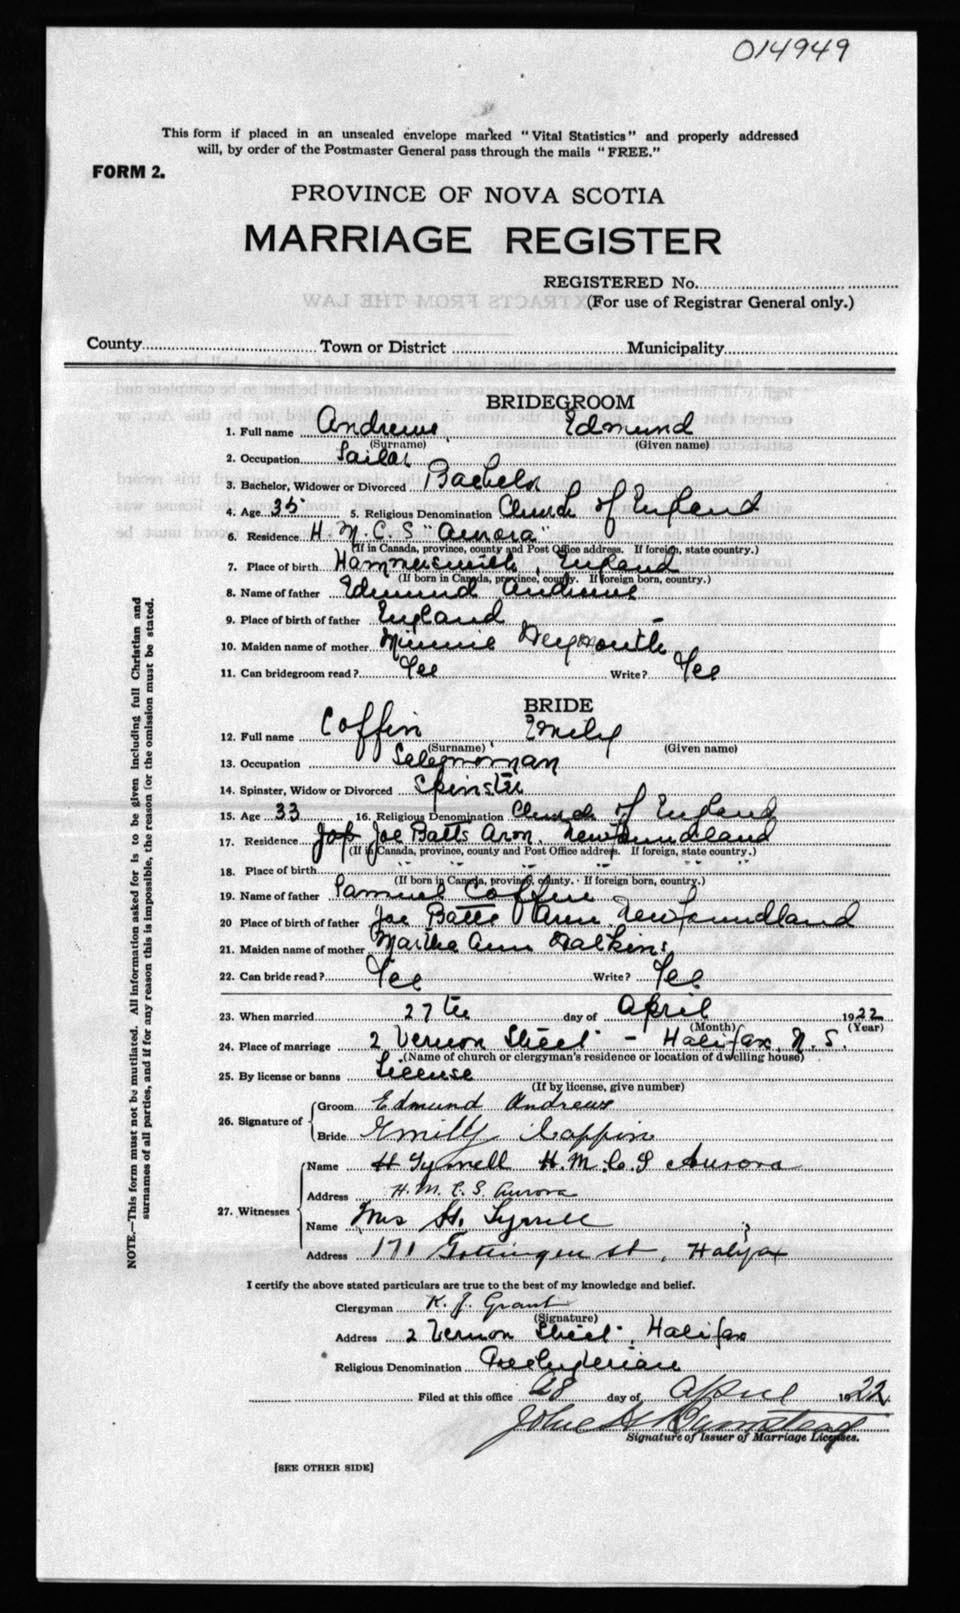 014949
This form if placed in an unsealed envelope marked "Vital Statistics" and properly addressed
will, by order of the Postmaster General pass through the mails "FREE."
FORM 2.
PROVINCE OF NOVA SCOTIA
MARRIAGE REGISTER
REGISTERED No.
(For use of Registrar General only.)
County Town or District Municipality
BRIDEGROOM
1. Full name Andrews, Edmund
(Surname) (Given name)
2. Occupation Sailor
3. Bachelor, Widower or Divorced Bachelor
4. Age 35 5. Religious Denomination Church of England
6. Residence H.M.C.S "Aurora"
(If in Canada, province, county and Post Office address. If foreign, state country.)
7. Place of birth Hammersmith, England
(If born in Canada, province, county. If foreign born, country.)
8. Name of father Edmund Andrews
9. Place of birth of father England
10. Maiden name of mother Minnie Weymouth
11. Can bridegroom read? Yes Write? Yes
BRIDE
12. Full name Coffin Emily
(Surname) (Given name)
13. Occupation
14. Spinster, Widow or Divorced Spinster
15. Age 33 16. Religious Denomination Church of England
17. Residence Joe Batts Arm, Newfoundland
(If in Canada, province, county and Post Office address. If foreign, state country.)
18. Place of birth " " " "
(If born in Canada, province, county. If foreign born, country.)
19. Name of father Samuel Coffin
20 Place of birth of father Joe Batts Arm Newfoundland
21. Maiden name of mother Martha Ann
22. Can bride read? Yes Write? Yes
23. When married 27th day of April 1922
(Month) (Year)
24. Place of marriage 2 Vernon Street - Halifax, N.S.
(Name of church or clergyman's residence or location of dwelling house)
25. By license or banns License
(If by license, give number)
26. Signature of Groom Edmund Andrews
Bride Emily Coffin
27. Witnesses Name H Tyrrell H.M.C.S Aurora
Address H.M.C.S. Aurora
Name Mrs H. Tyrrell
Address 171 Gottingen St, Halifax
I certify the above stated particulars are true to the best of my knowledge and belief.
Clergyman K. J. Grant
(Signature)
Address 2 Vernon Street, Halifax
Religious Denomination Presbyterian
Filed at this office 28 day of April 1922
John H Bumstead
Signature of Issuer of Marriage Licenses.
[SEE OTHER SIDE]
NOTE.—This form must not be mutilated. All information asked for is to be given including full Christian and
surnames of all parties, and if for any reason this is impossible, the reason for the omission must be stated.